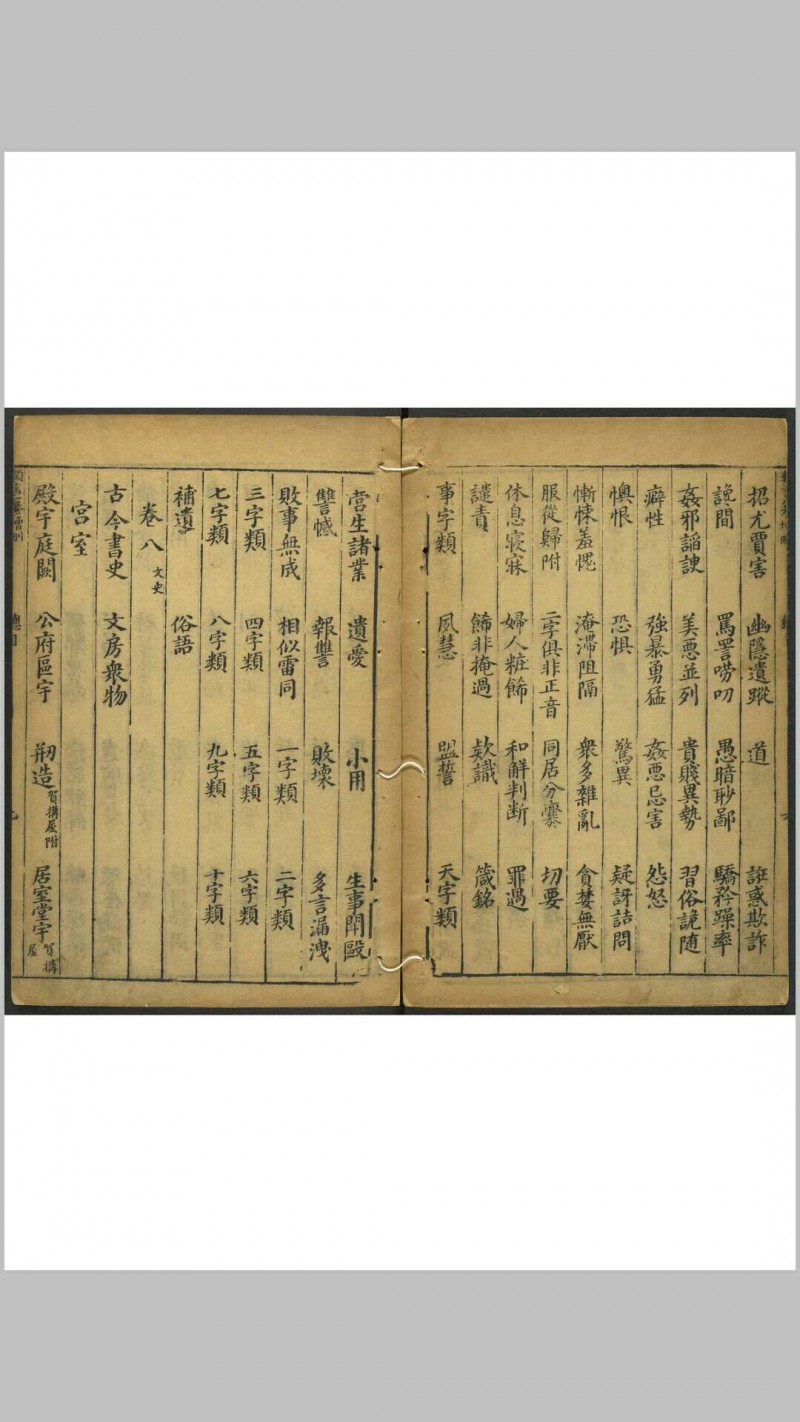 招尤賈害 幽隱遺蹤 道 誑惑欺詐
讒間 罵詈嘮叨 愚暗眇鄙 驕矜躁率
姦邪諂諛 美惡並列 貴賤異勢 習俗詭随
癖性 強暴勇猛 姦惡忌害 怨怒
懊恨 恐惧 驚異 疑訝詰問
慚悚羞愧 淹滯阻隔 衆多雜亂 貪婪無厭
服從歸附 二字俱非正音 同居分爨 切要
休息寝寐 婦人粧飾 和解判断 罪過
譴責 飾非掩過 欵識 箴銘
事字類 夙慧 盟誓 天字類
營生諸業 遺愛 小用 生事鬪毆
讐憾 報讐 敗壞 多言漏洩
敗事無成 相似雷同 一字類 二字類
三字類 四字類 五字類 六字類
七字類 八字類 九字類 十字類
補遺 俗語
卷八 文史
古今書史 文房衆物
宫室
殿宇庭闕 公府區宇 剏造 賀搆屋附 居室堂宇 賀搆屋
總目
九